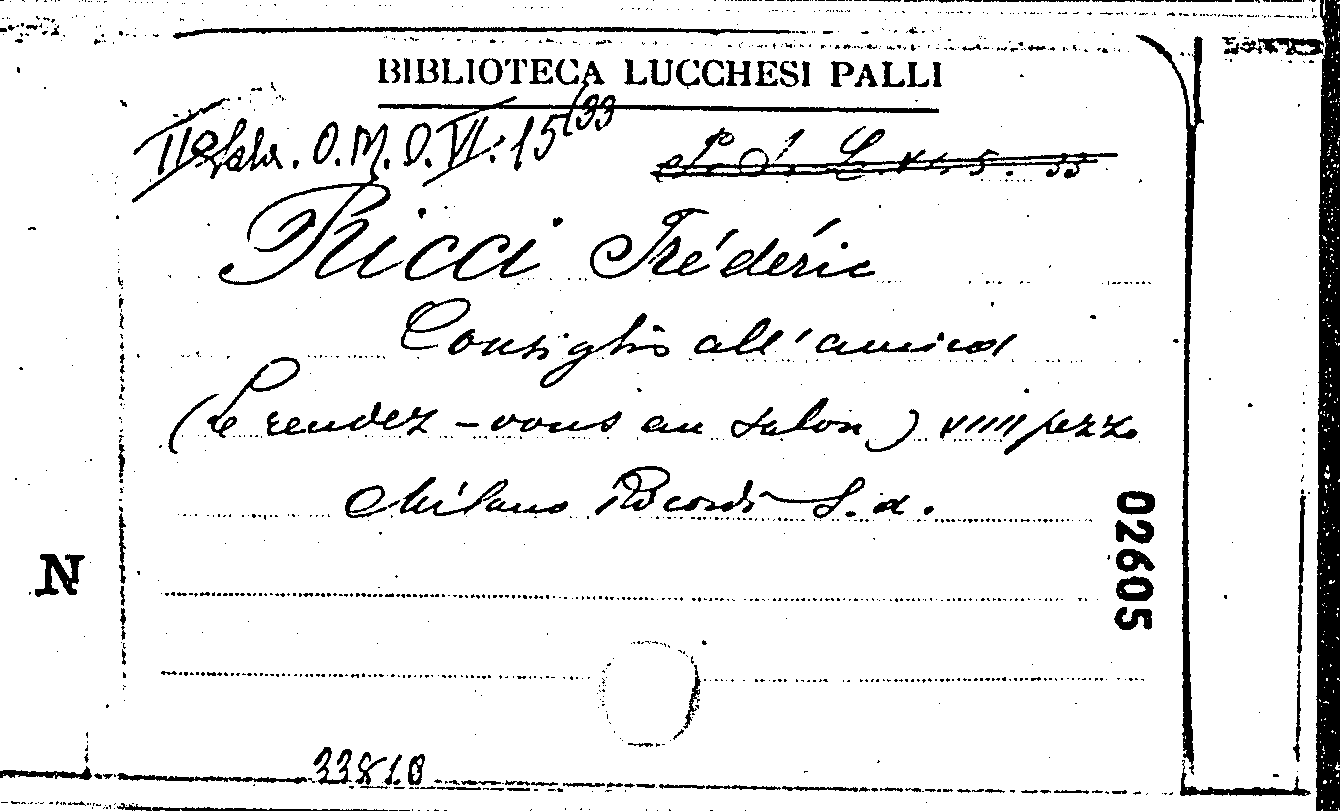 BIBLIOTECA LUCCHESI PALLI
IIª Sala. O. M. O. VI. 15/33
Ricci Frédéric
Consiglio all'amica
(Le rendez-vous au salon) VIIII pezzo
Milano Ricordi S. d.
02605
N
33818